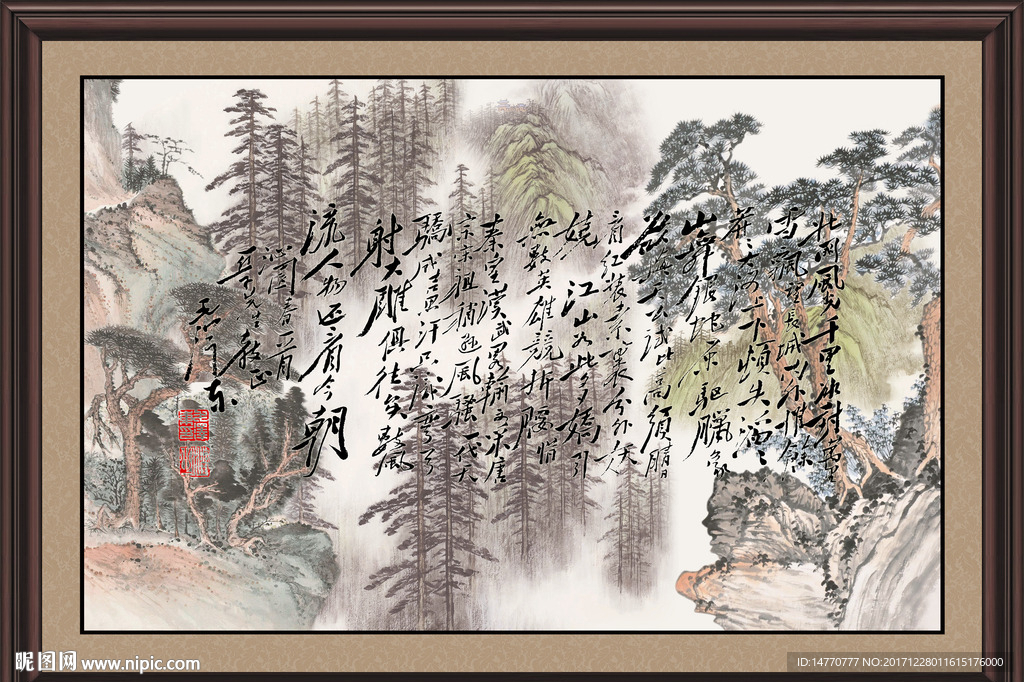 北国风光千里冰封万里
雪飘望长城内外惟馀
莽莽大河上下顿失滔滔
山舞银蛇原驱腊象
欲与天公试比高须晴
看红装素裹分外妖
娆江山如此多娇引
无数英雄竞折腰惜
秦皇汉武略输文采唐
宗宋祖稍逊风骚一代天
骄成吉思汗只识弯弓
射大雕俱往矣数风
流人物还看今朝
润之
先生教正
毛泽东
昵图网 www.nipic.com
ID:14770777 NO:20171228011615176000